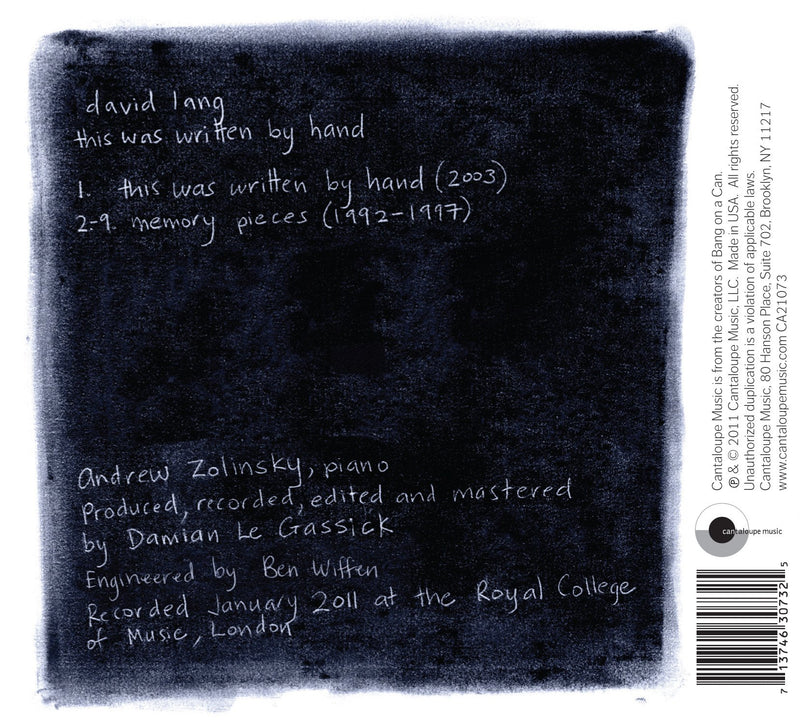 david lang
this was written by hand
1. this was written by hand (2003)
2-9. memory pieces (1992-1997)
Andrew Zolinsky, piano
Produced, recorded, edited and mastered
by Damian Le Gassick
Engineered by Ben Wiffen
Recorded January 2011 at the Royal College
of Music, London
Cantaloupe Music is from the creators of Bang on a Can.
℗ & © 2011 Cantaloupe Music, LLC. Made in USA. All rights reserved.
Unauthorized duplication is a violation of applicable laws.
Cantaloupe Music, 80 Hanson Place, Suite 702, Brooklyn, NY 11217
www.cantaloupemusic.com CA21073
cantaloupe music
7 13746 30732 5